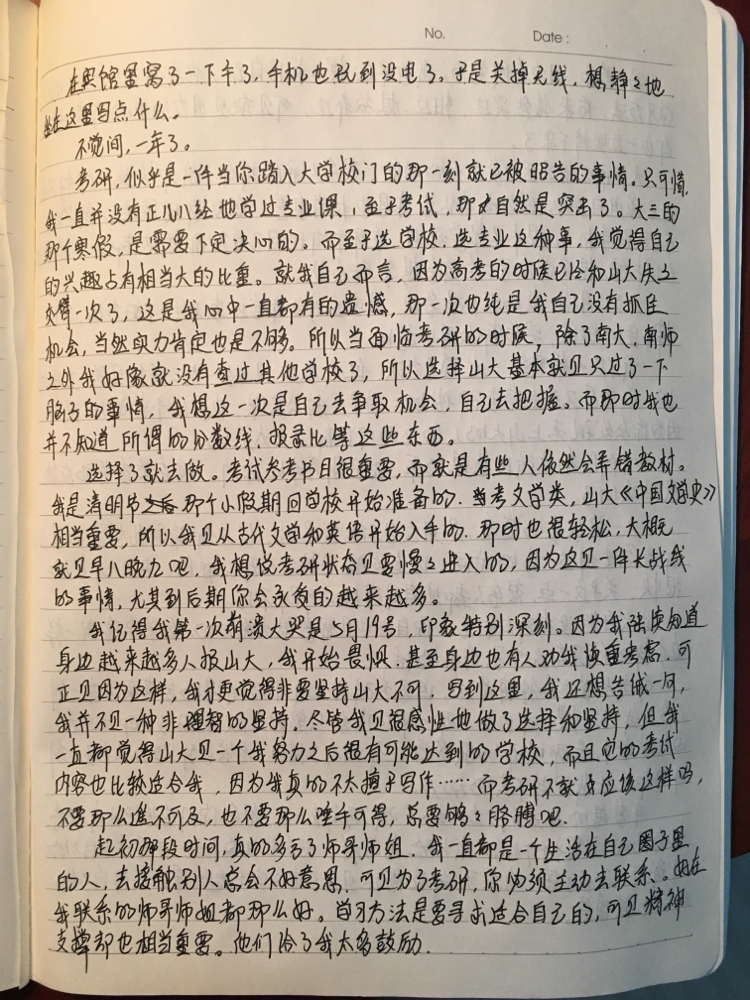 No.    Date:
在宾馆里窝了一下午了,手机也玩到没电了。于是关掉无线,想静々地
坐在这里写点什么。
不觉间,一年了。
考研,似乎是一件当你踏入大学校门的那一刻就已被昭告的事情。只可惜,
我一直并没有正儿八经地学过专业课,至于考试,那又自然是突击了。大三的
那个寒假,是需要下定决心的。而至于选学校、选专业这种事,我觉得自己
的兴趣占有相当大的比重。就我自己而言,因为高考的时候已经和山大失之
交臂一次了,这是我心中一直都有的遗憾,那一次也纯是我自己没有抓住
机会,当然实力肯定也是不够。所以当面临考研的时候,除了南大、南师
之外我好像就没有查过其他学校了,所以选择山大基本就只过了一下
脑子的事情,我想这一次是自己去争取机会,自己去把握。而那时我也
并不知道所谓的分数线、报录比等这些东西。
选择了就去做。考试参考书目很重要,而就是有些人依然会弄错教材。
我是清明节那个小假期回学校开始准备的。考文学类,山大《中国文学史》
相当重要,所以我是从古代文学和英语开始入手的。那时也很轻松,大概
就是早八晚九吧。我想说考研状态是要慢々进入的,因为这是一件长战线
的事情,尤其到后期你会永负的越来越多。
我记得我第一次崩溃大哭是5月19号,印象特别深刻。因为我陆续知道
身边越来越多人报山大,我开始畏惧,甚至身边也有人劝我慎重考虑,可
正是因为这样,我才更觉得非要坚持山大不可。写到这里,我还想告诫一句,
我并不是一种非理智的坚持。尽管我是很感性地做了选择和坚持,但我
一直都觉得山大是一个我努力之后很有可能达到的学校,而且它的考试
内容也比较适合我,因为我真的不太擅于写作……而考研不就应该这样吗,
不要那么遥不可及,也不要那么唾手可得,总要够々胳膊吧。
起初那段时间,真的多亏了师哥师姐。我一直都是一个生活在自己圈子里
的人,去接触别人总会不好意思,可是为了考研,你必须主动去联系。好在
我联系的师哥师姐都那么好。学习方法是要寻求适合自己的,可是精神
支撑却也相当重要。他们给了我太多鼓励.